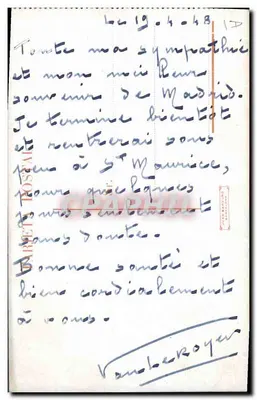 Le 19-4-48
Toute ma sympathie
et mon meilleur
souvenir de Madrid.
Je termine bientôt
et rentrerai sous
peu à St Maurice,
pour quelques
jours seulement
sans doute.
Bonne santé et
bien cordialement
à vous.